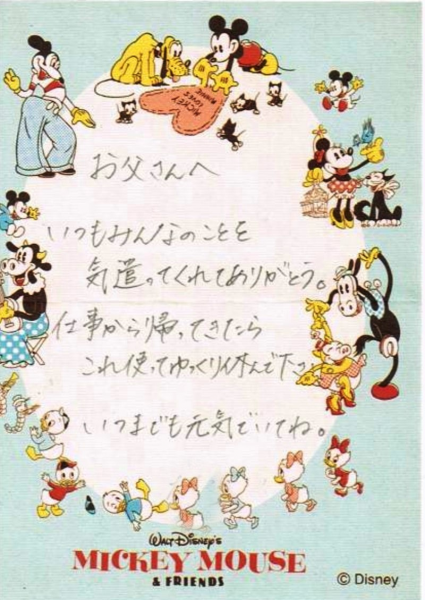 MICKEY LOVES MINNIE
お父さんへ
いつもみんなのことを
気遣ってくれてありがとう。
仕事から帰ってきたら
これ使ってゆっくり休んで下さ
いつまでも元気でいてね。
WALT DISNEY'S
MICKEY MOUSE
& FRIENDS
© Disney